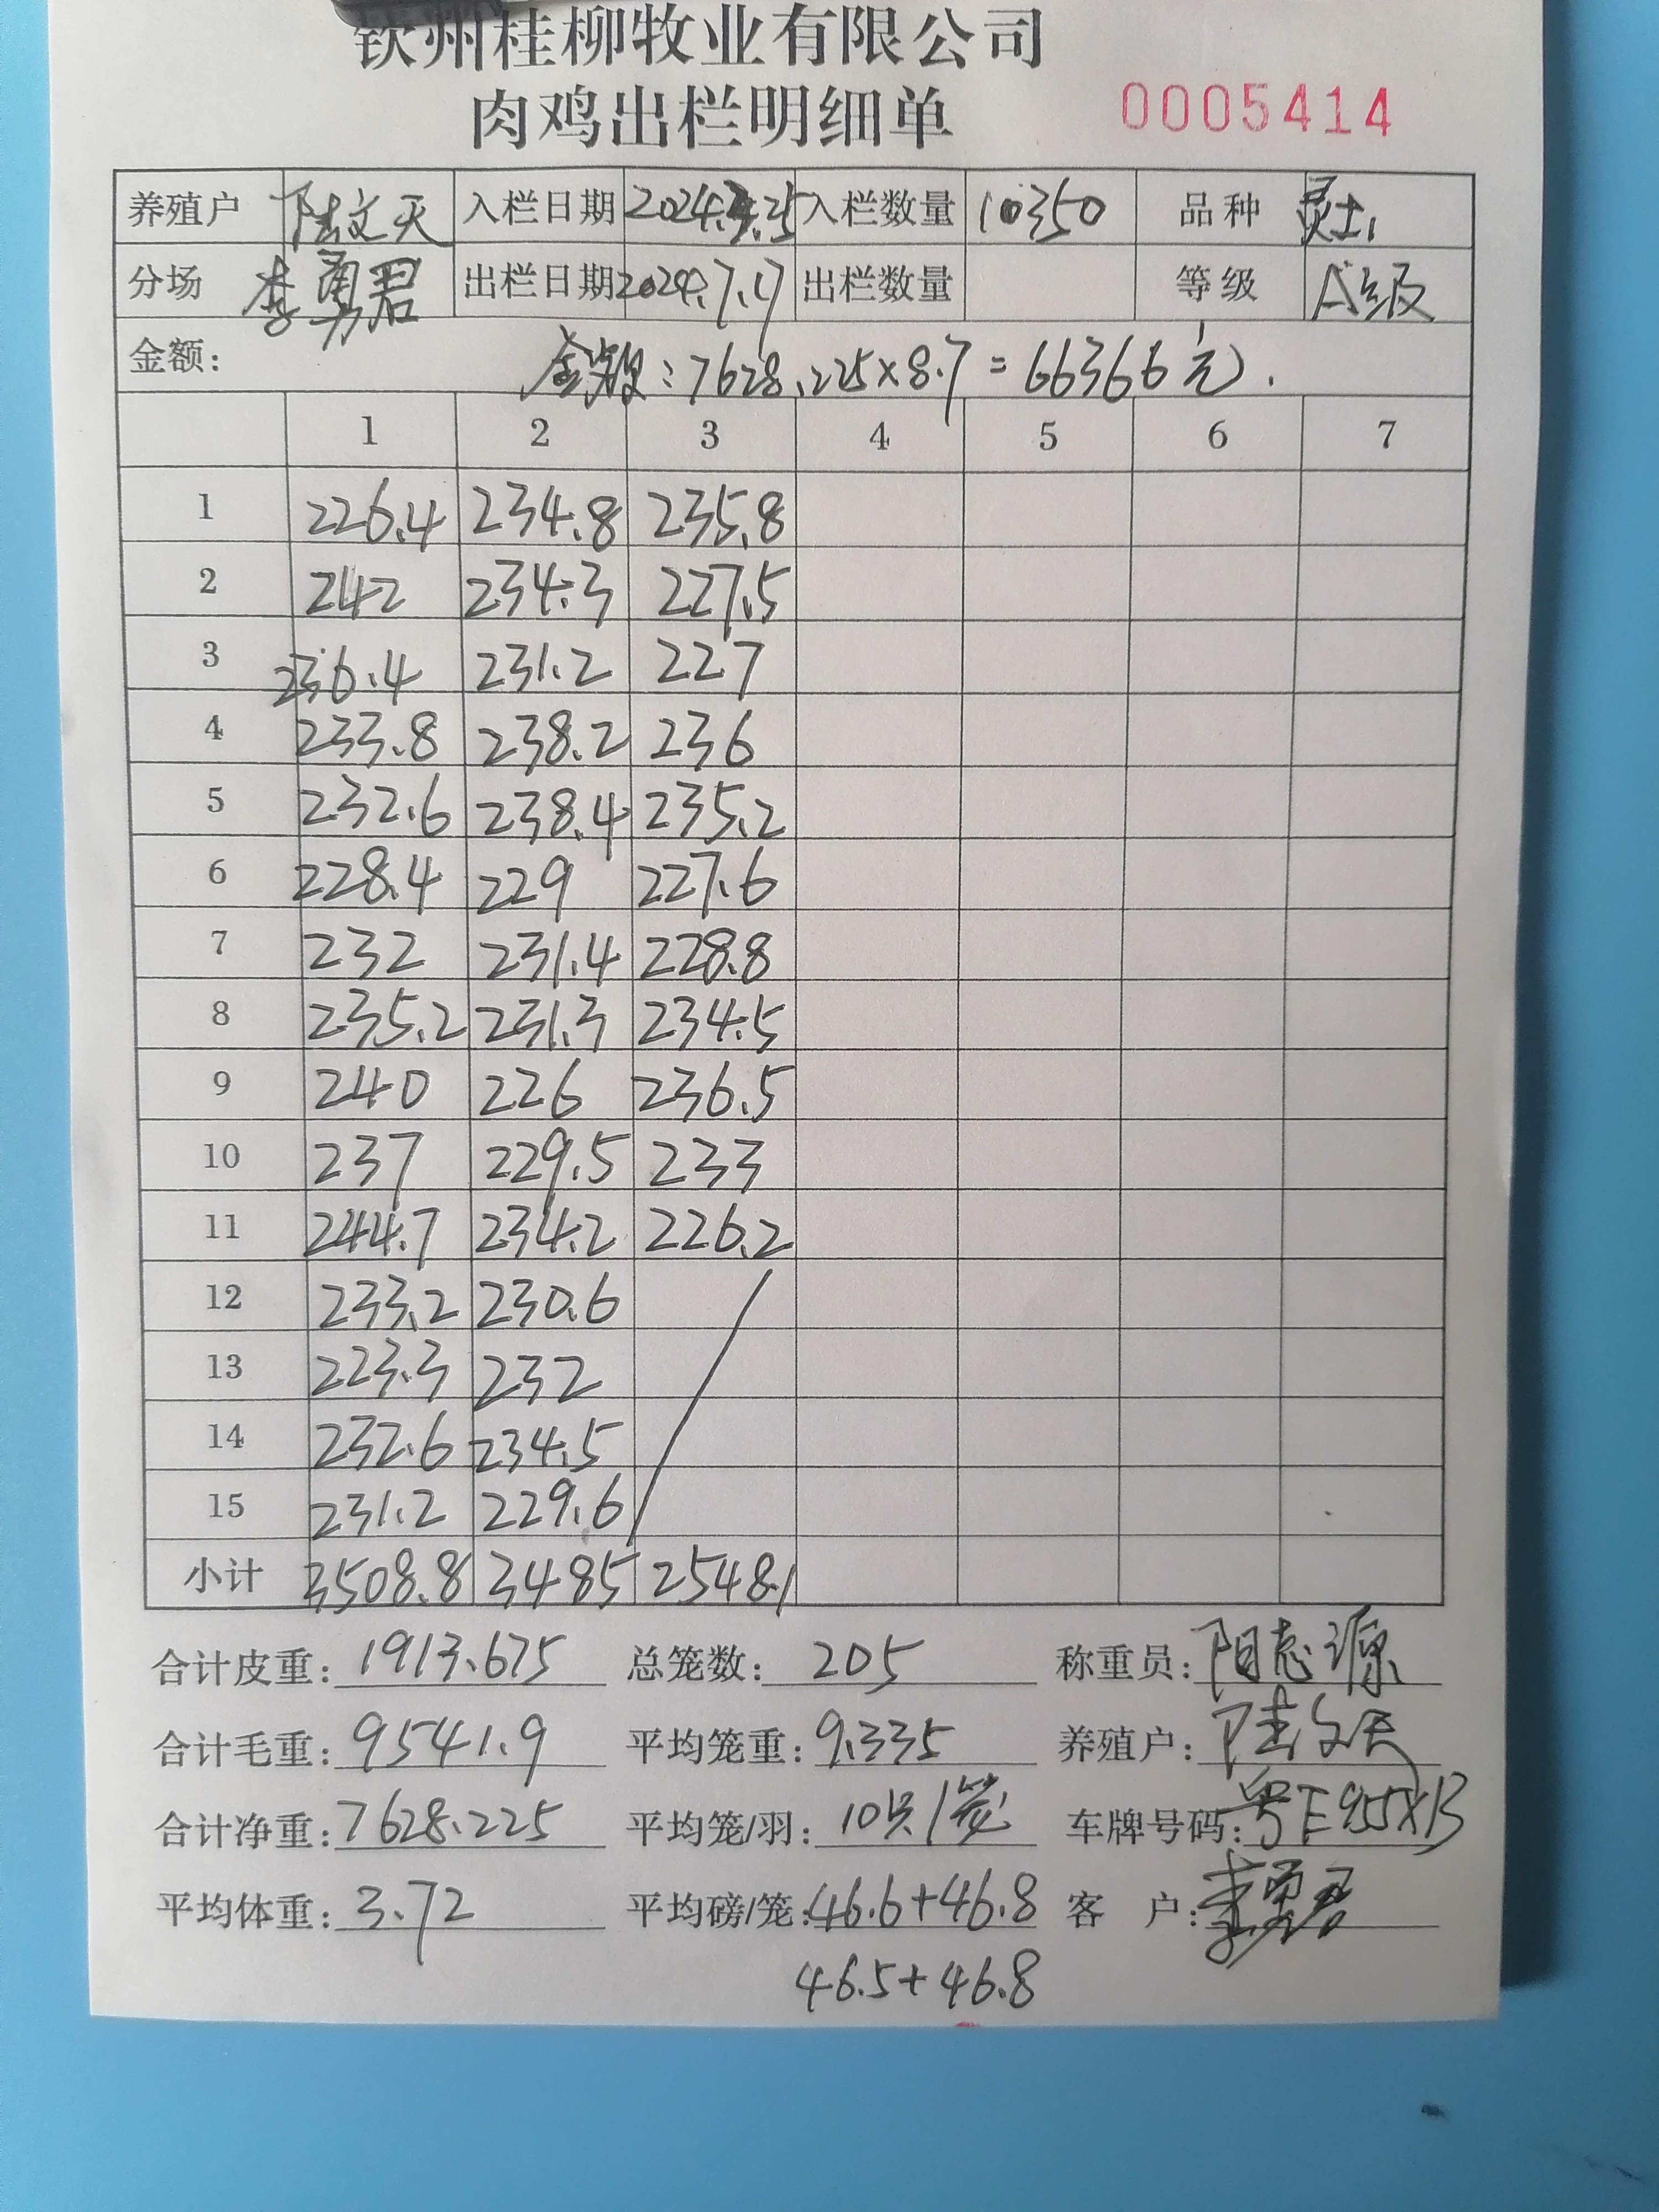 钦州桂柳牧业有限公司
肉鸡出栏明细单 0005414
养殖户 陆文天 入栏日期 2024.3.25 入栏数量 10350 品种 灵土1
分场 李勇君 出栏日期 2024.7.17 出栏数量 等级 A级
金额: 金额:7628.225×8.7=66366元.
1 2 3 4 5 6 7
1 226.4 234.8 235.8
2 242 234.3 227.5
3 236.4 231.2 227
4 233.8 238.2 236
5 232.6 238.4 235.2
6 228.4 229 227.6
7 232 231.4 228.8
8 235.2 231.3 234.5
9 240 226 236.5
10 237 229.5 233
11 244.7 234.2 226.2
12 233.2 230.6
13 223.3 232
14 232.6 234.5
15 231.2 229.6
小计 3508.8 3485 2548.1
合计皮重: 1913.675 总笼数: 205 称重员: 阳志源
合计毛重: 9541.9 平均笼重: 9.335 养殖户: 陆文天
合计净重: 7628.225 平均笼/羽: 10只/笼 车牌号码: 粤E955XB
平均体重: 3.72 平均磅/笼: 46.6+46.8 客 户: 李勇君
46.5+46.8